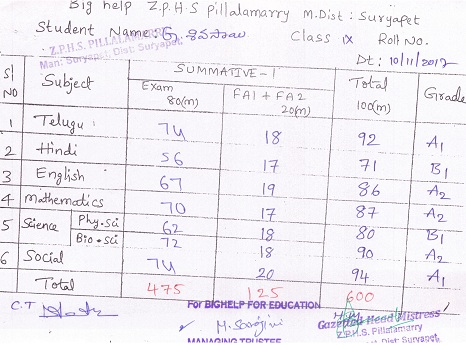 Big help Z.P.H.S Pillalamarry M.Dist: Suryapet
Student Name: G. శివసాయి Class IX Roll No.
Z.P.H.S. PILLALAMARRY
Man: Suryapet, Dist: Suryapet. Dt: 10/11/2017
Sl NO Subject SUMMATIVE-1 Total 100(m) Grade
Exam 80(m) FA1 + FA2 20(m)
1 Telugu 74 18 92 A1
2 Hindi 56 17 71 B1
3 English 67 19 86 A2
4 Mathematics 70 17 87 A2
5 Science Phy.sci 62 18 80 B1
Bio.sci 72 18 90 A2
6 Social 74 20 94 A1
Total 475 125 600
C.T For BIGHELP FOR EDUCATION
M. Sarojini Gazetted Head Mistress
Z.P.H.S. Pillalamarry
MANAGING TRUSTEE Dist: Suryapet